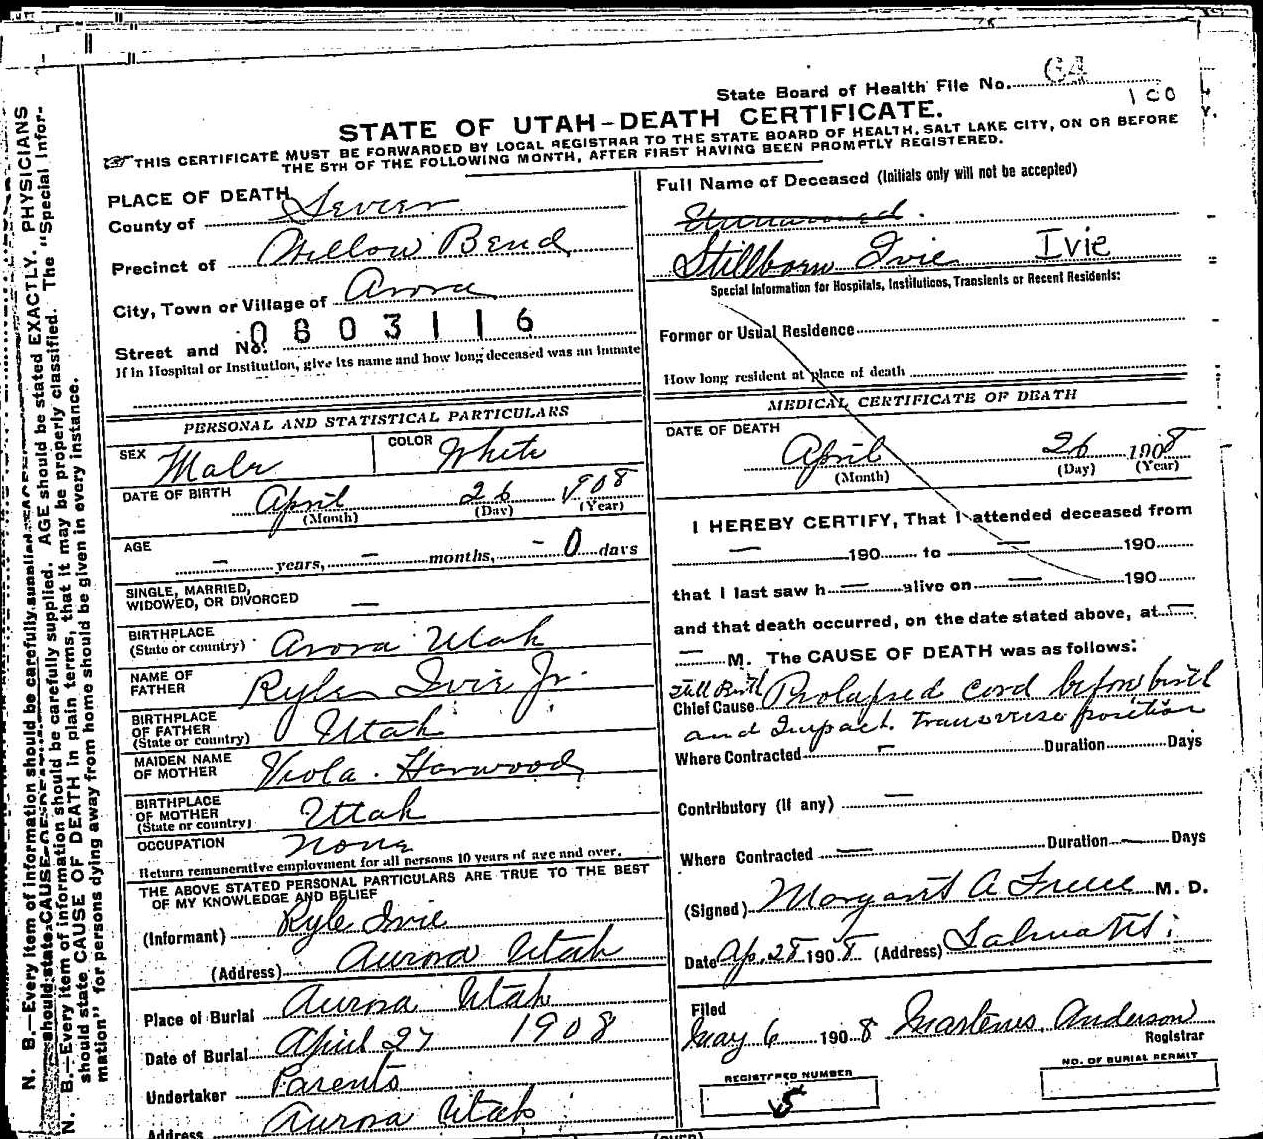 State Board of Health File No. 64
100
STATE OF UTAH-DEATH CERTIFICATE.
THIS CERTIFICATE MUST BE FORWARDED BY LOCAL REGISTRAR TO THE STATE BOARD OF HEALTH, SALT LAKE CITY, ON OR BEFORE
THE 5TH OF THE FOLLOWING MONTH, AFTER FIRST HAVING BEEN PROMPTLY REGISTERED.
PLACE OF DEATH
County of Sevier
Precinct of Willow Bend
City, Town or Village of Arora
Street and No. 0803116
If in Hospital or Institution, give its name and how long deceased was an inmate
PERSONAL AND STATISTICAL PARTICULARS
SEX Male COLOR White
DATE OF BIRTH April 26 1908
(Month) (Day) (Year)
AGE – years, – months, – 0 days
SINGLE, MARRIED,
WIDOWED, OR DIVORCED —
BIRTHPLACE
(State or country) Arora Utah
NAME OF
FATHER Ryle Ivie Jr.
BIRTHPLACE
OF FATHER
(State or country) Utah
MAIDEN NAME
OF MOTHER Viola Harwood
BIRTHPLACE
OF MOTHER
(State or country) Utah
OCCUPATION None
Return remunerative employment for all persons 10 years of age and over.
THE ABOVE STATED PERSONAL PARTICULARS ARE TRUE TO THE BEST
OF MY KNOWLEDGE AND BELIEF
(Informant) Ryle Ivie
(Address) Aurora Utah
Place of Burial Aurora Utah
Date of Burial April 27 1908
Undertaker Parents
Address Aurora Utah
Full Name of Deceased (Initials only will not be accepted)
Unnamed.
Stillborn Ivie Ivie
Special Information for Hospitals, Institutions, Transients or Recent Residents:
Former or Usual Residence
How long resident at place of death
MEDICAL CERTIFICATE OF DEATH
DATE OF DEATH
April 26 1908
(Month) (Day) (Year)
I HEREBY CERTIFY, That I attended deceased from
— 190 to — 190
that I last saw h — alive on — 190
and that death occurred, on the date stated above, at —
— M. The CAUSE OF DEATH was as follows:
Still Birth
Chief Cause Prolapsed cord before birth
and Impact. Transverse position
Where Contracted – Duration Days
Contributory (if any) —
Where Contracted — Duration — Days
(Signed) Margaret A M. D.
Date Ap. 28 1908 (Address) Salina
Filed
May 6 1908 Martenus Anderson
Registrar
REGISTERED NUMBER
5
NO. OF BURIAL PERMIT
(OVER)
N. B.—Every item of information should be carefully supplied. AGE should be stated EXACTLY. PHYSICIANS
should state CAUSE OF DEATH in plain terms, that it may be properly classified. The "Special Information" for persons dying away from home should be given in every instance.